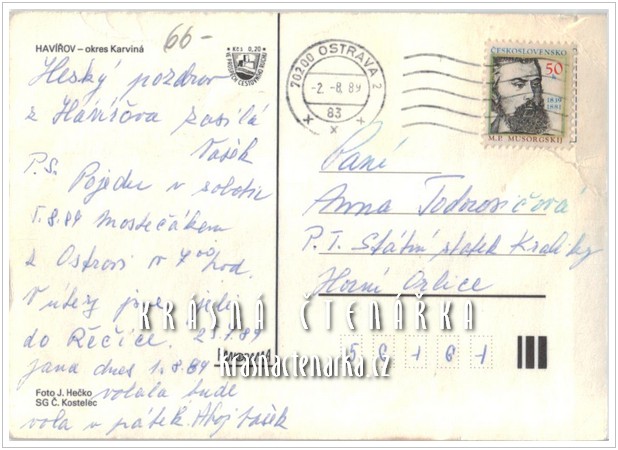 HAVÍŘOV – okres Karviná
66-
Kčs 0,20
VE PROSPĚCH CESTOVNÍHO RUCHU
Heský pozdrav
z Havířova zasílá
Vašek
P.S. Pojedu v sobotu
5.8.89 Mostečákem
z Ostravi v 7 00 hod.
V úterý jsme jeli
do Řečice. 25.7.89
jana dnes 1.8.89
volala bude
vola v pátek. Ahoj Vašek
Foto J. Hečko
SG Č. Kostelec
70200 OSTRAVA 2
-2.-8.89
83
ČESKOSLOVENSKO
50 h
1839
1881
M.P. MUSORGSKIJ
Paní
Anna Todorovičová
P.T. Státní statek Kraliky
Horní Orlice
5 6 1 6 1
KRÁSNÁ ČTENÁŘKA
krasnactenarka.cz